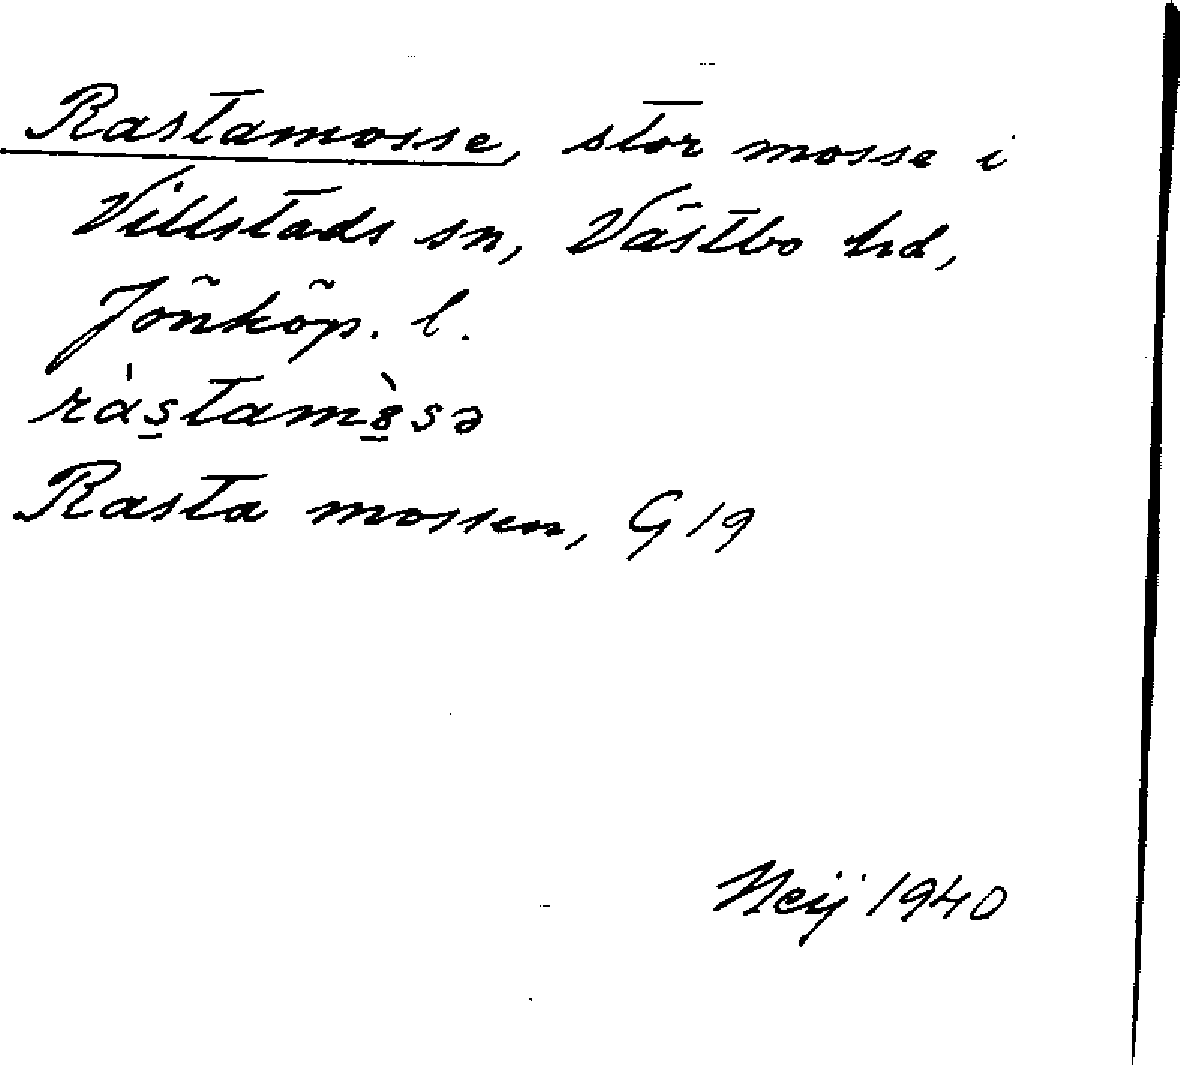 Rastamosse, stor mosse i
Villstads sn, Västbo hd,
Jönköp. l.
ràs̲tam8̲̀sə
Rasta mossen, G 19
Neij 1940